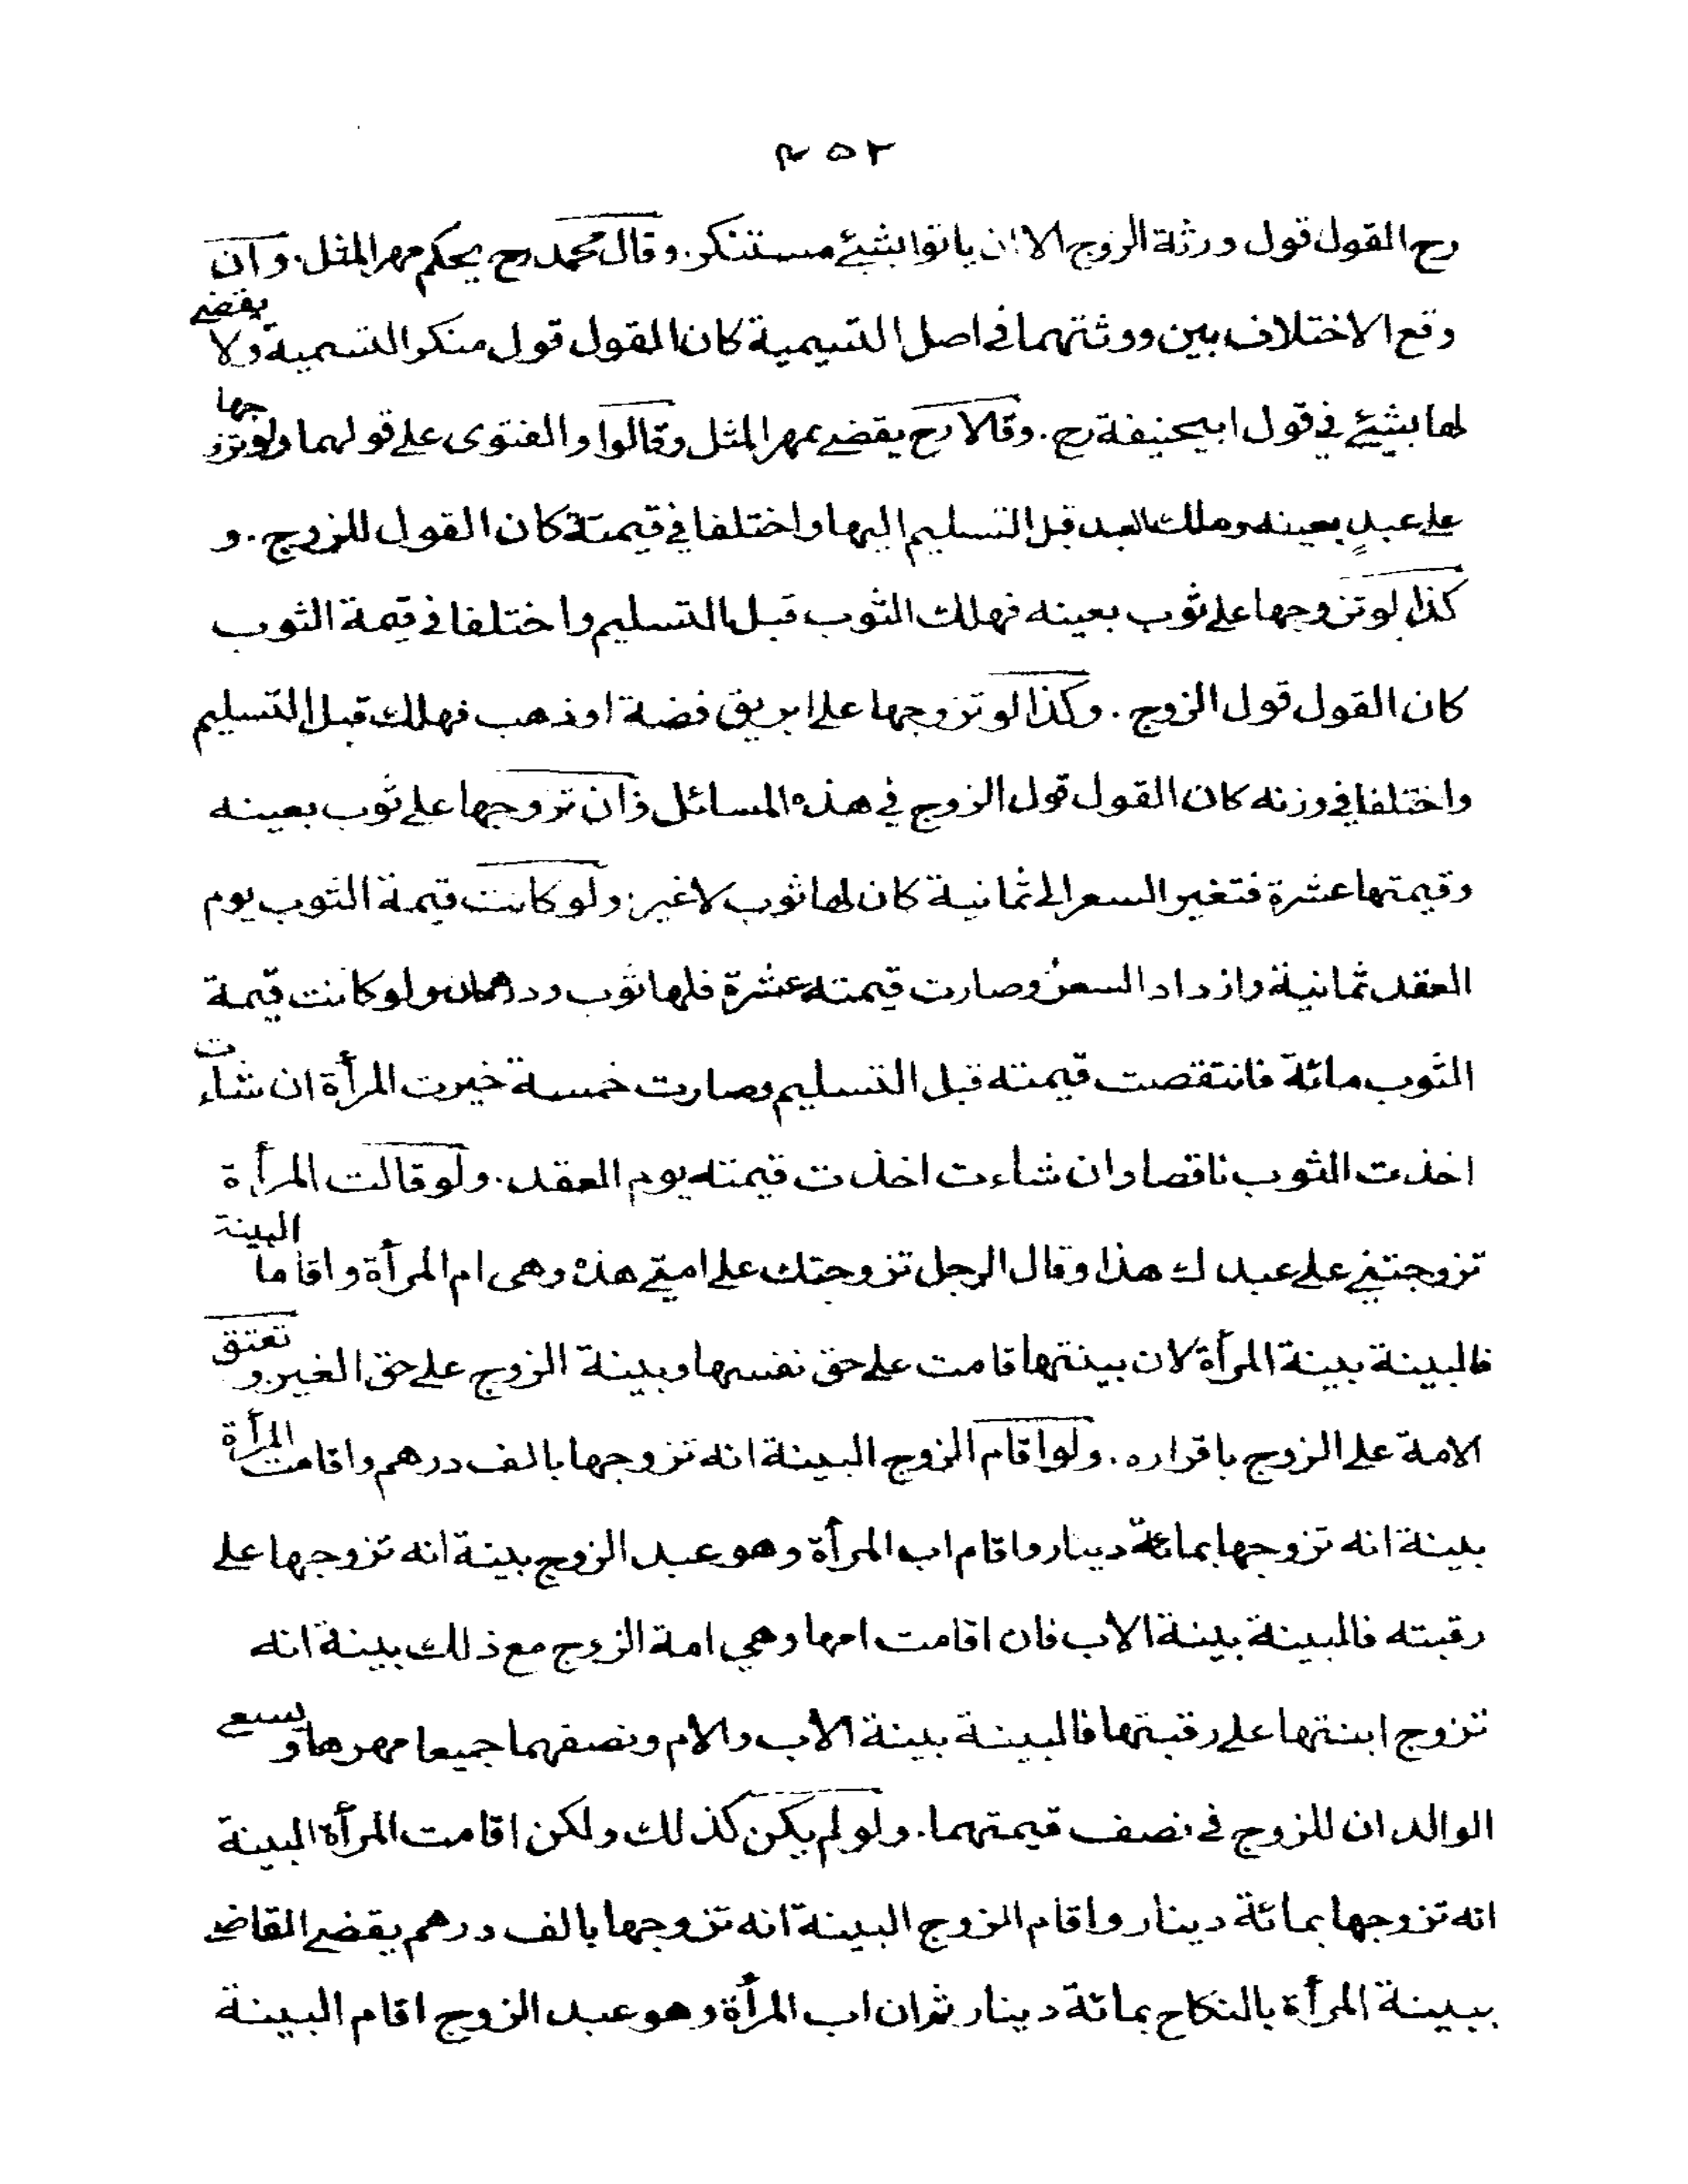 ٢٥٢
رح القول قول ورثة الزوج الا ان ياتوا بشئ مستنكر. وقال محمد رح يحكم مهر المثل. وان
وقع الاختلاف بين وورثتهما في اصل التسمية كان القول قول منكر التسمية ولا يقضى
لها بشئ في قول ابيحنيفة رح. وقالا رح يقضى بمهر المثل وقالوا والفتوى على قولهما ولو تزوجها
على عبدٍ بعينه وهلك العبد قبل التسليم اليها واختلفا في قيمته كان القول للزوج. و
كذا لو تزوجها على ثوب بعينه فهلك الثوب قبل التسليم واختلفا في قيمة الثوب
كان القول قول الزوج. وكذا لو تزوجها على ابريق فضة او ذهب فهلك قبل التسليم
واختلفا في وزنه كان القول قول الزوج في هذه المسائل وان تزوجها على ثوب بعينه
وقيمتها عشرة فتغير السعر الى ثمانية كان لها ثوب لا غير. ولو كانت قيمة الثوب يوم
العقد ثمانية وازداد السعر وصارت قيمته عشرة فلها ثوب ودرهمان ولو كانت قيمة
الثوب مائة فانتقصت قيمته قبل التسليم وصارت خمسة خيرت المرأة ان شاءت
اخذت الثوب ناقصا وان شاءت اخذت قيمته يوم العقد. ولو قالت المرأة
تزوجتني على عبدك هذا وقال الرجل تزوجتك على امتي هذه وهى ام المرأة واقاما البينة
فالبينة بينة المرأة لان بينتها قامت على حق نفسها وبينة الزوج على حق الغير. و تعتق
الامة على الزوج باقراره. ولو اقام الزوج البينة انه تزوجها بالف درهم واقامت المرأة
بينة انه تزوجها بمائة دينار واقام اب المرأة وهو عبد الزوج بينة انه تزوجها على
رقبته فالبينة بينة الاب فان اقامت امها وهي امة الزوج مع ذلك بينة انه
تزوج ابنتها على رقبتها فالبينة بينة الاب والام ونصفهما جميعا مهرها و يسعى
الوالدان للزوج في نصف قيمتهما. ولو لم يكن كذلك ولكن اقامت المرأة البينة
انه تزوجها بمائة دينار واقام الزوج البينة انه تزوجها بالف درهم يقضى القاضى
ببينة المرأة بالنكاح بمائة دينار ثم ان اب المرأة وهو عبد الزوج اقام البينة